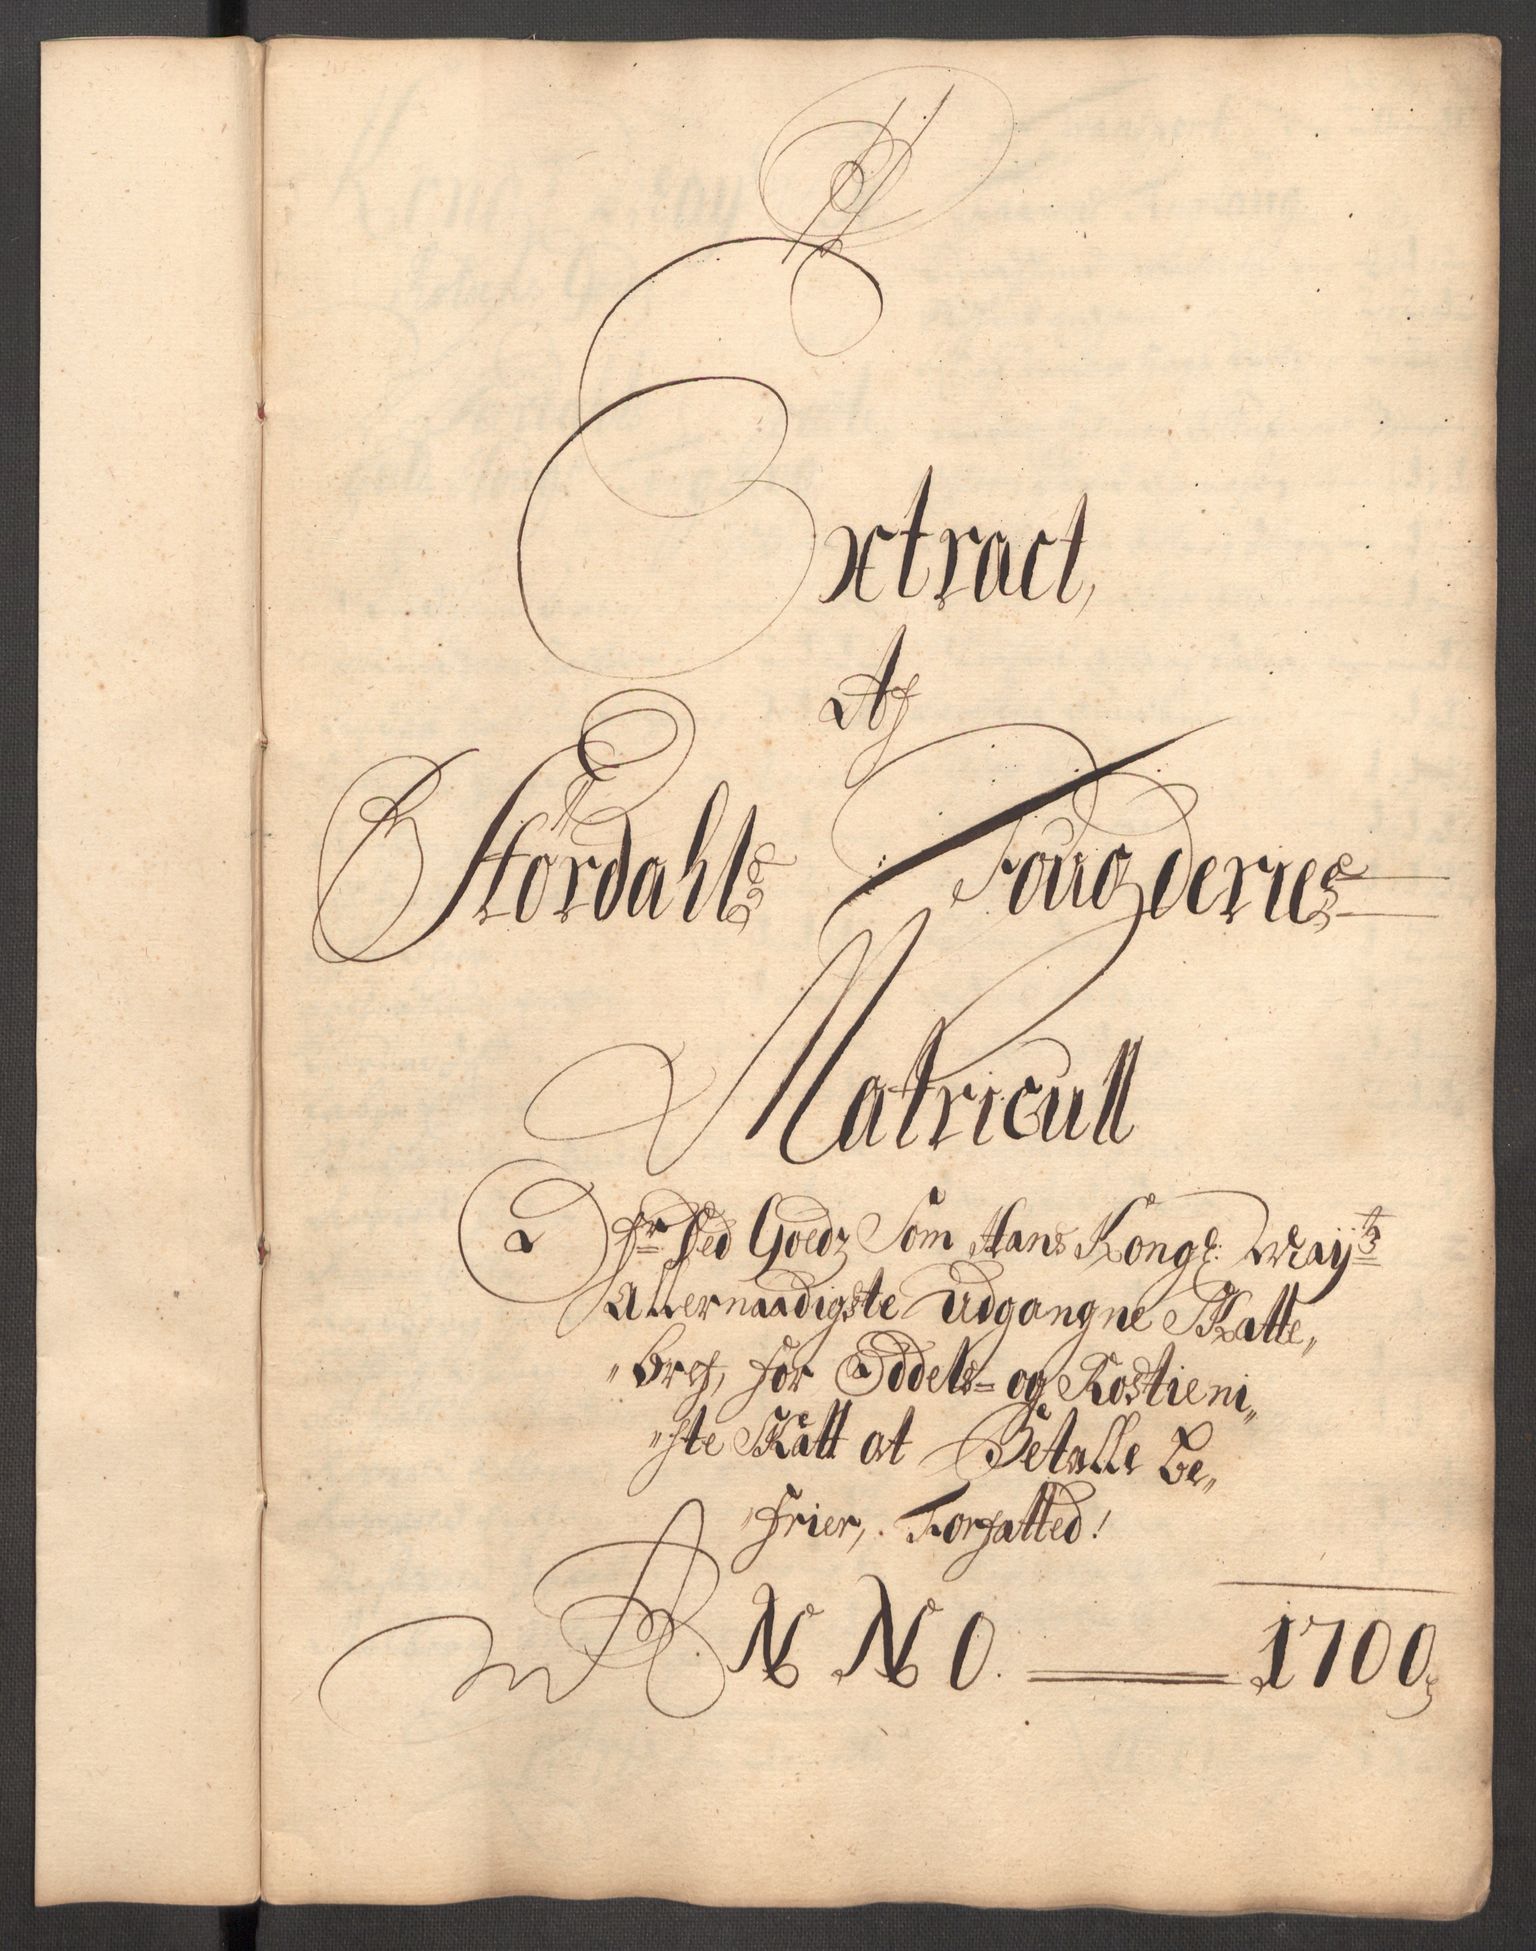 Extract,
Af
Størdahls Fougderies
Matricull
Ofr Ded Goedz Som Hans Kongl: May:ts
Allernaadigste Udgangne Skatte„
„bref, for Oddels= og Rostieni„
„ste Skatt at Betalle be„
„frier, . Forfatted!
ANNO. 1700,